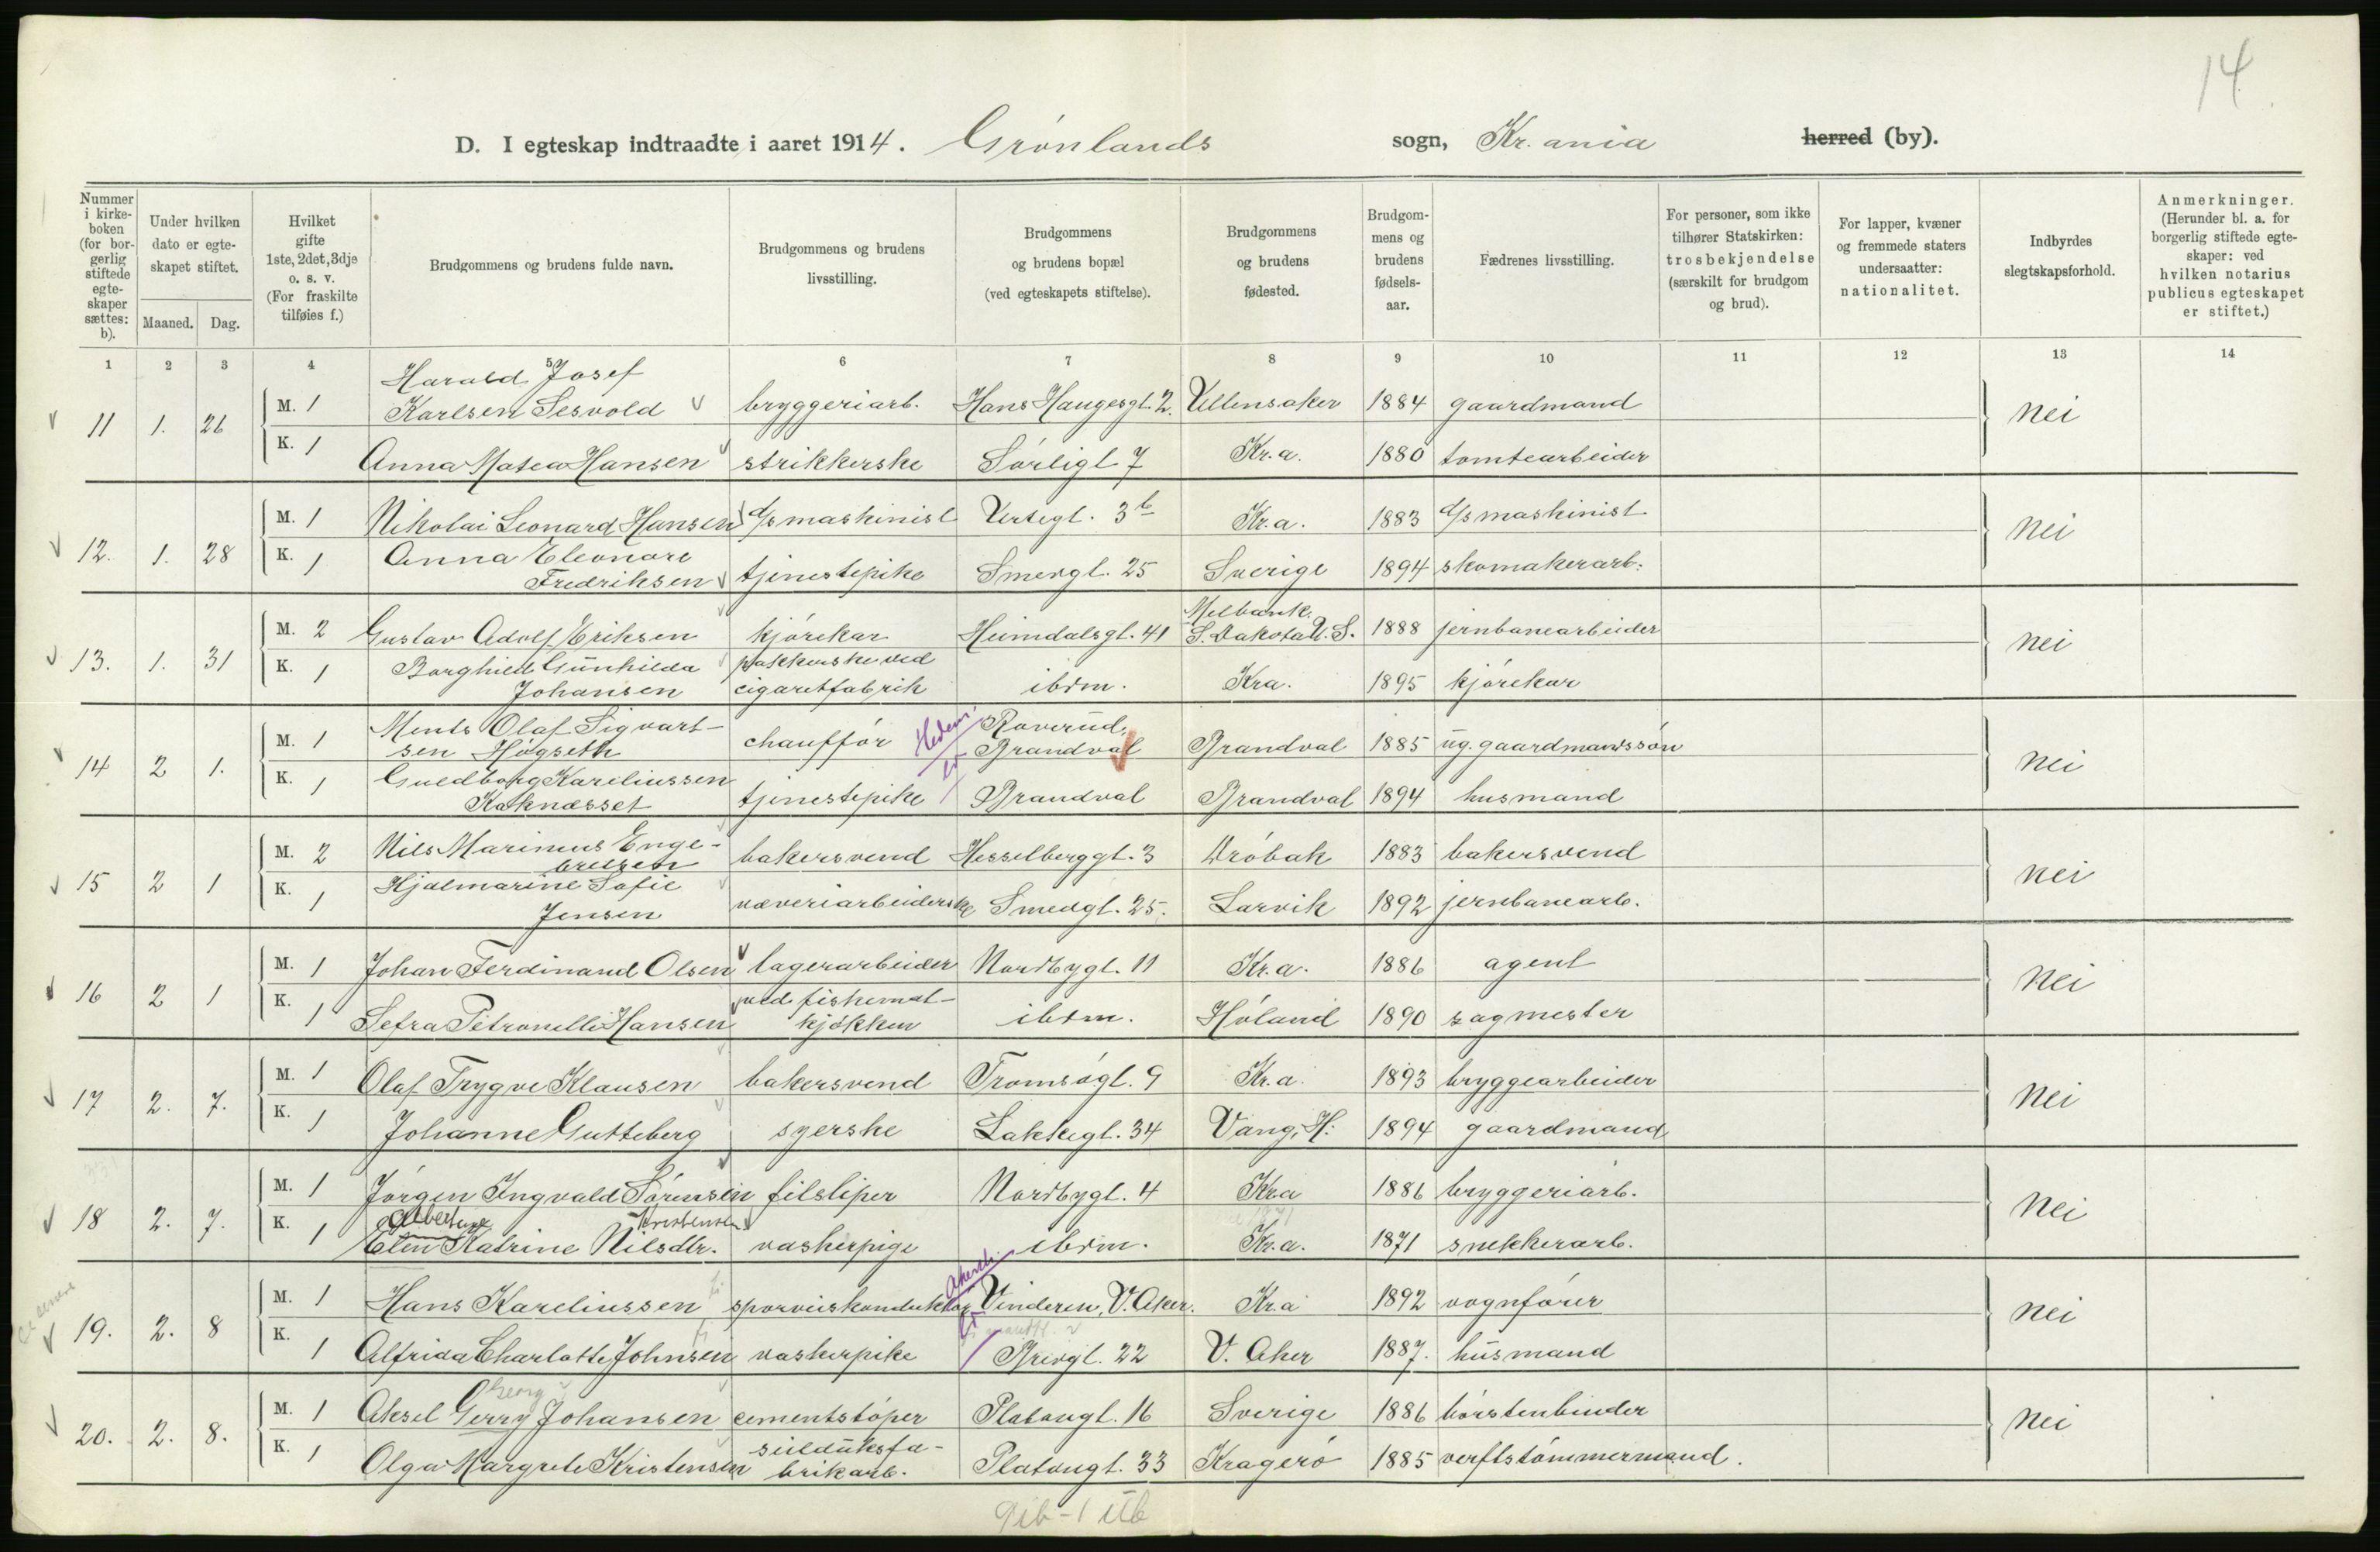 14
D. I egteskap indtraadte i aaret 1914. Grønlands sogn, Kr.ania herred (by).
Nummer i kirkeboken (for borgerlig stiftede egteskaper sættes: b).
Under hvilken dato er egteskapet stiftet.
Maaned. Dag.
Hvilket gifte 1ste, 2det, 3dje o. s. v. (For fraskilte tilføies f.)
Brudgommens og brudens fulde navn.
Brudgommens og brudens livsstilling.
Brudgommens og brudens bopæl (ved egteskapets stiftelse).
Brudgommens og brudens fødested.
Brudgommens og brudens fødselsaar.
Fædrenes livsstilling.
For personer, som ikke tilhører Statskirken: trosbekjendelse (særskilt for brudgom og brud).
For lapper, kvæner og fremmede staters undersaatter: nationalitet.
Indbyrdes slegtskapsforhold.
Anmerkninger. (Herunder bl. a. for borgerlig stiftede egteskaper: ved hvilken notarius publicus egteskapet er stiftet.)
1 2 3 4 5 6 7 8 9 10 11 12 13 14
11 1. 26 M. 1 Harald Josef Karlsen Sesvold bryggeriarb. Hans Haugesgt. 2. Ullensaker 1884 gaardmand nei
K. 1 Anna Matea Hansen strikkerske Sørligt 7 Kr.a. 1880 tomtearbeider
12. 1. 28 M. 1 Nikolai Leonard Hansen D/s maskinist Urtegt. 3b Kr.a. 1883 D/s maskinist nei
K. 1 Anna Eleonore Fredriksen tjenestepike Smedgt. 25 Sverige 1894 skomakerarb.
13. 1. 31 M. 2 Gustav Adolf Eriksen kjørekar Heimdalsgt. 41 Melbank. S. Dakota U. S. 1888 jernbanearbeider nei
K. 1 Borghild Gunhilda Johansen pakkerske ved cigaretfabrik ibdm. Kra. 1895 kjørekar
14 2 1. M. 1 Ments Olaf Sigvartsen Høgseth chauffør Hedem. Roverud, Brandval Brandval 1885 ug. gaardmandssøn nei
K. 1 Guldborg Kareliussen Kaknæsset tjenestepike Brandval Brandval 1894 husmand
15 2 1 M. 2 Nils Marinius Engebretsen bakersvend Hesselberggt. 3 Drøbak 1883 bakersvend nei
K. 1 Hjalmarine Sofie Jensen væveriarbeiderske Smedgt. 25. Larvik 1892 jernbanearb.
16 2 1 M. 1 Johan Ferdinand Olsen lagerarbeider Nordbygt. 11 Kr.a. 1886 agent nei
K. 1 Sefra Petronelle Hansen ved fiskematkjøkken ibdm. Høland 1890 sagmester
17 2. 7. M. 1 Olaf Trygve Klausen bakersvend Tromsøgt. 9 Kr.a. 1893 bryggearbeider nei
K. 1 Johanne Gutteberg syerske Lakkegt. 34 Vang, H. 1894 gaardmand
18 2. 7. M. 1 Jørgen Ingvald Sørensen filsliper Nordbygt. 4 Kra 1886 bryggeriarb. nei
K. 1 Albertine Kristensen
Elen Katrine Nilsdtr. vaskerpige ibdm. Kr.a. 1871 snekkerarb.
19. 2. 8 M. 1 Hans Kareliussen sporveiskonduktør Akersh. Vinderen, V. Aker. Kr.a 1892 vognfører nei
K. 1 Alfrida Charlotte Johnsen vaskerpike Brevgt. 22 V. Aker 1887. husmand
20. 2. 8. M. 1 Georg
Aksel Gerry Johansen cementstøper Platougt. 16 Sverige 1886 børstenbinder nei
K. 1 Olga Margrete Kristensen seilduksfabrikarb. Platougt. 33 Kragerø 1885 verftstømmermand.